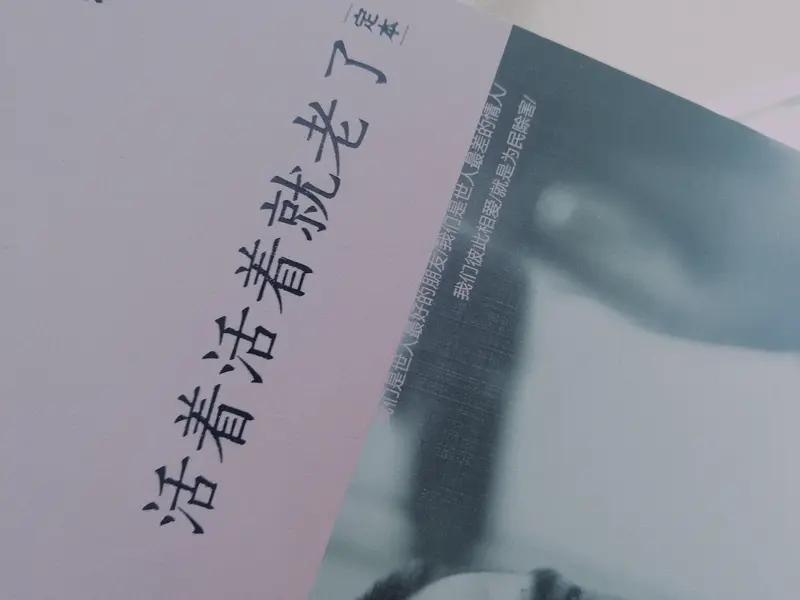 活着活着就老了
定本
我们是世人最好的朋友/我们是世人最差的情人/
我们彼此相爱/就是为民除害/